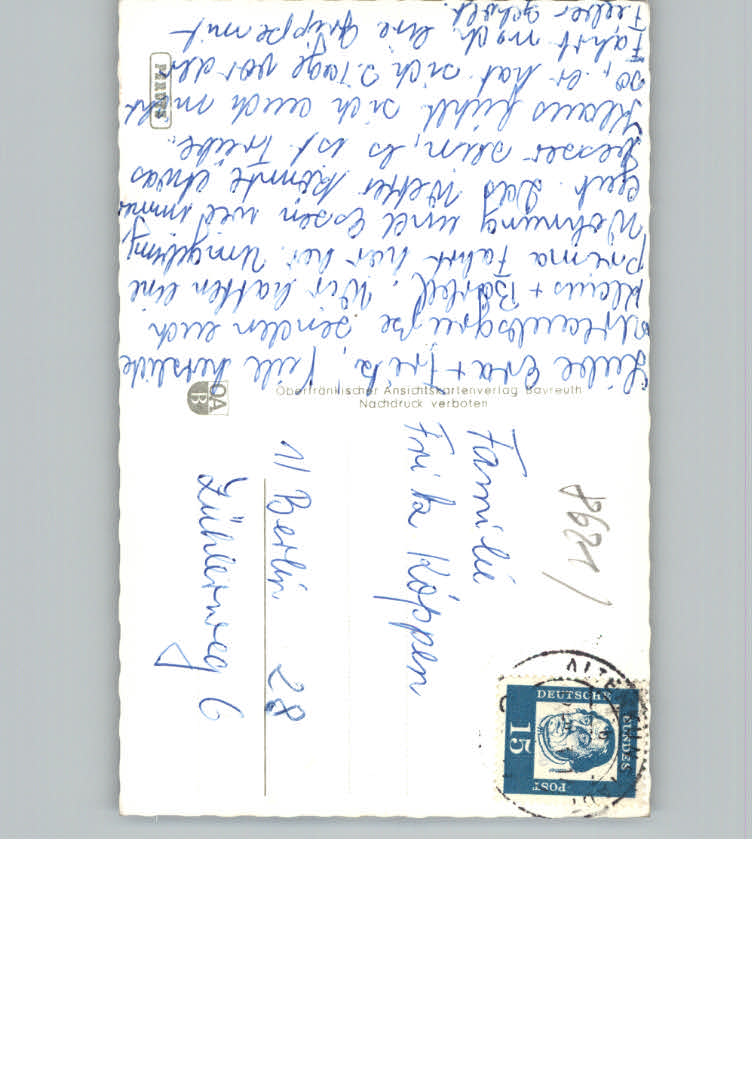 Liebe Eva + Fritz, viele herzliche
Urlaubsgrüße senden euch
Klaus + Bärbel. Wir hatten eine
prima Fahrt hier her. Umgebung,
Wohnung und Essen wie immer
gut. Das Wetter könnte etwas
besser sein, es ist trübe.
Klaus fühlt sich auch nicht
so, er hat sich 2 Tage vor der
Fahrt noch eine Grippe mit
Fieber geholt.
PERUTZ
OA
B
Oberfränkischer Ansichtskartenverlag Bayreuth
Nachdruck verboten
8621
Familie
Fritz Köppen
1/ Berlin 28
Zühlsweg 6
DEUTSCHE
BUNDES
POST
15